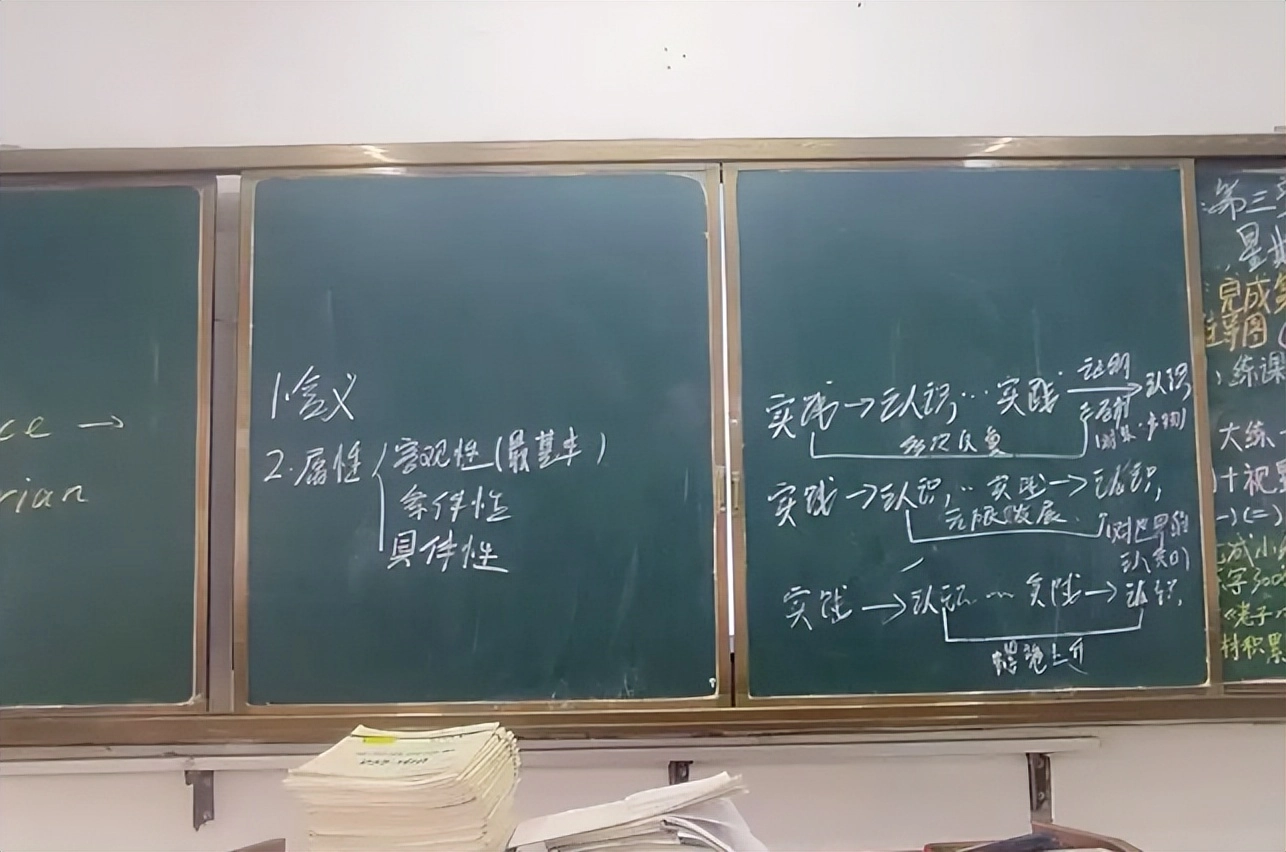 ce →
rian
1.含义
2.属性 客观性(最基本)
条件性
具体性
实践→认识…实践 证明→认识
多次反复
实践→认识,…实践→认识,
无限发展
(对世界的
认识)
实践→认识…实践→认识,
上升
第三
完成
导图
练课
大练
十视
(一)(二)
成小
字300
《老子
材积累